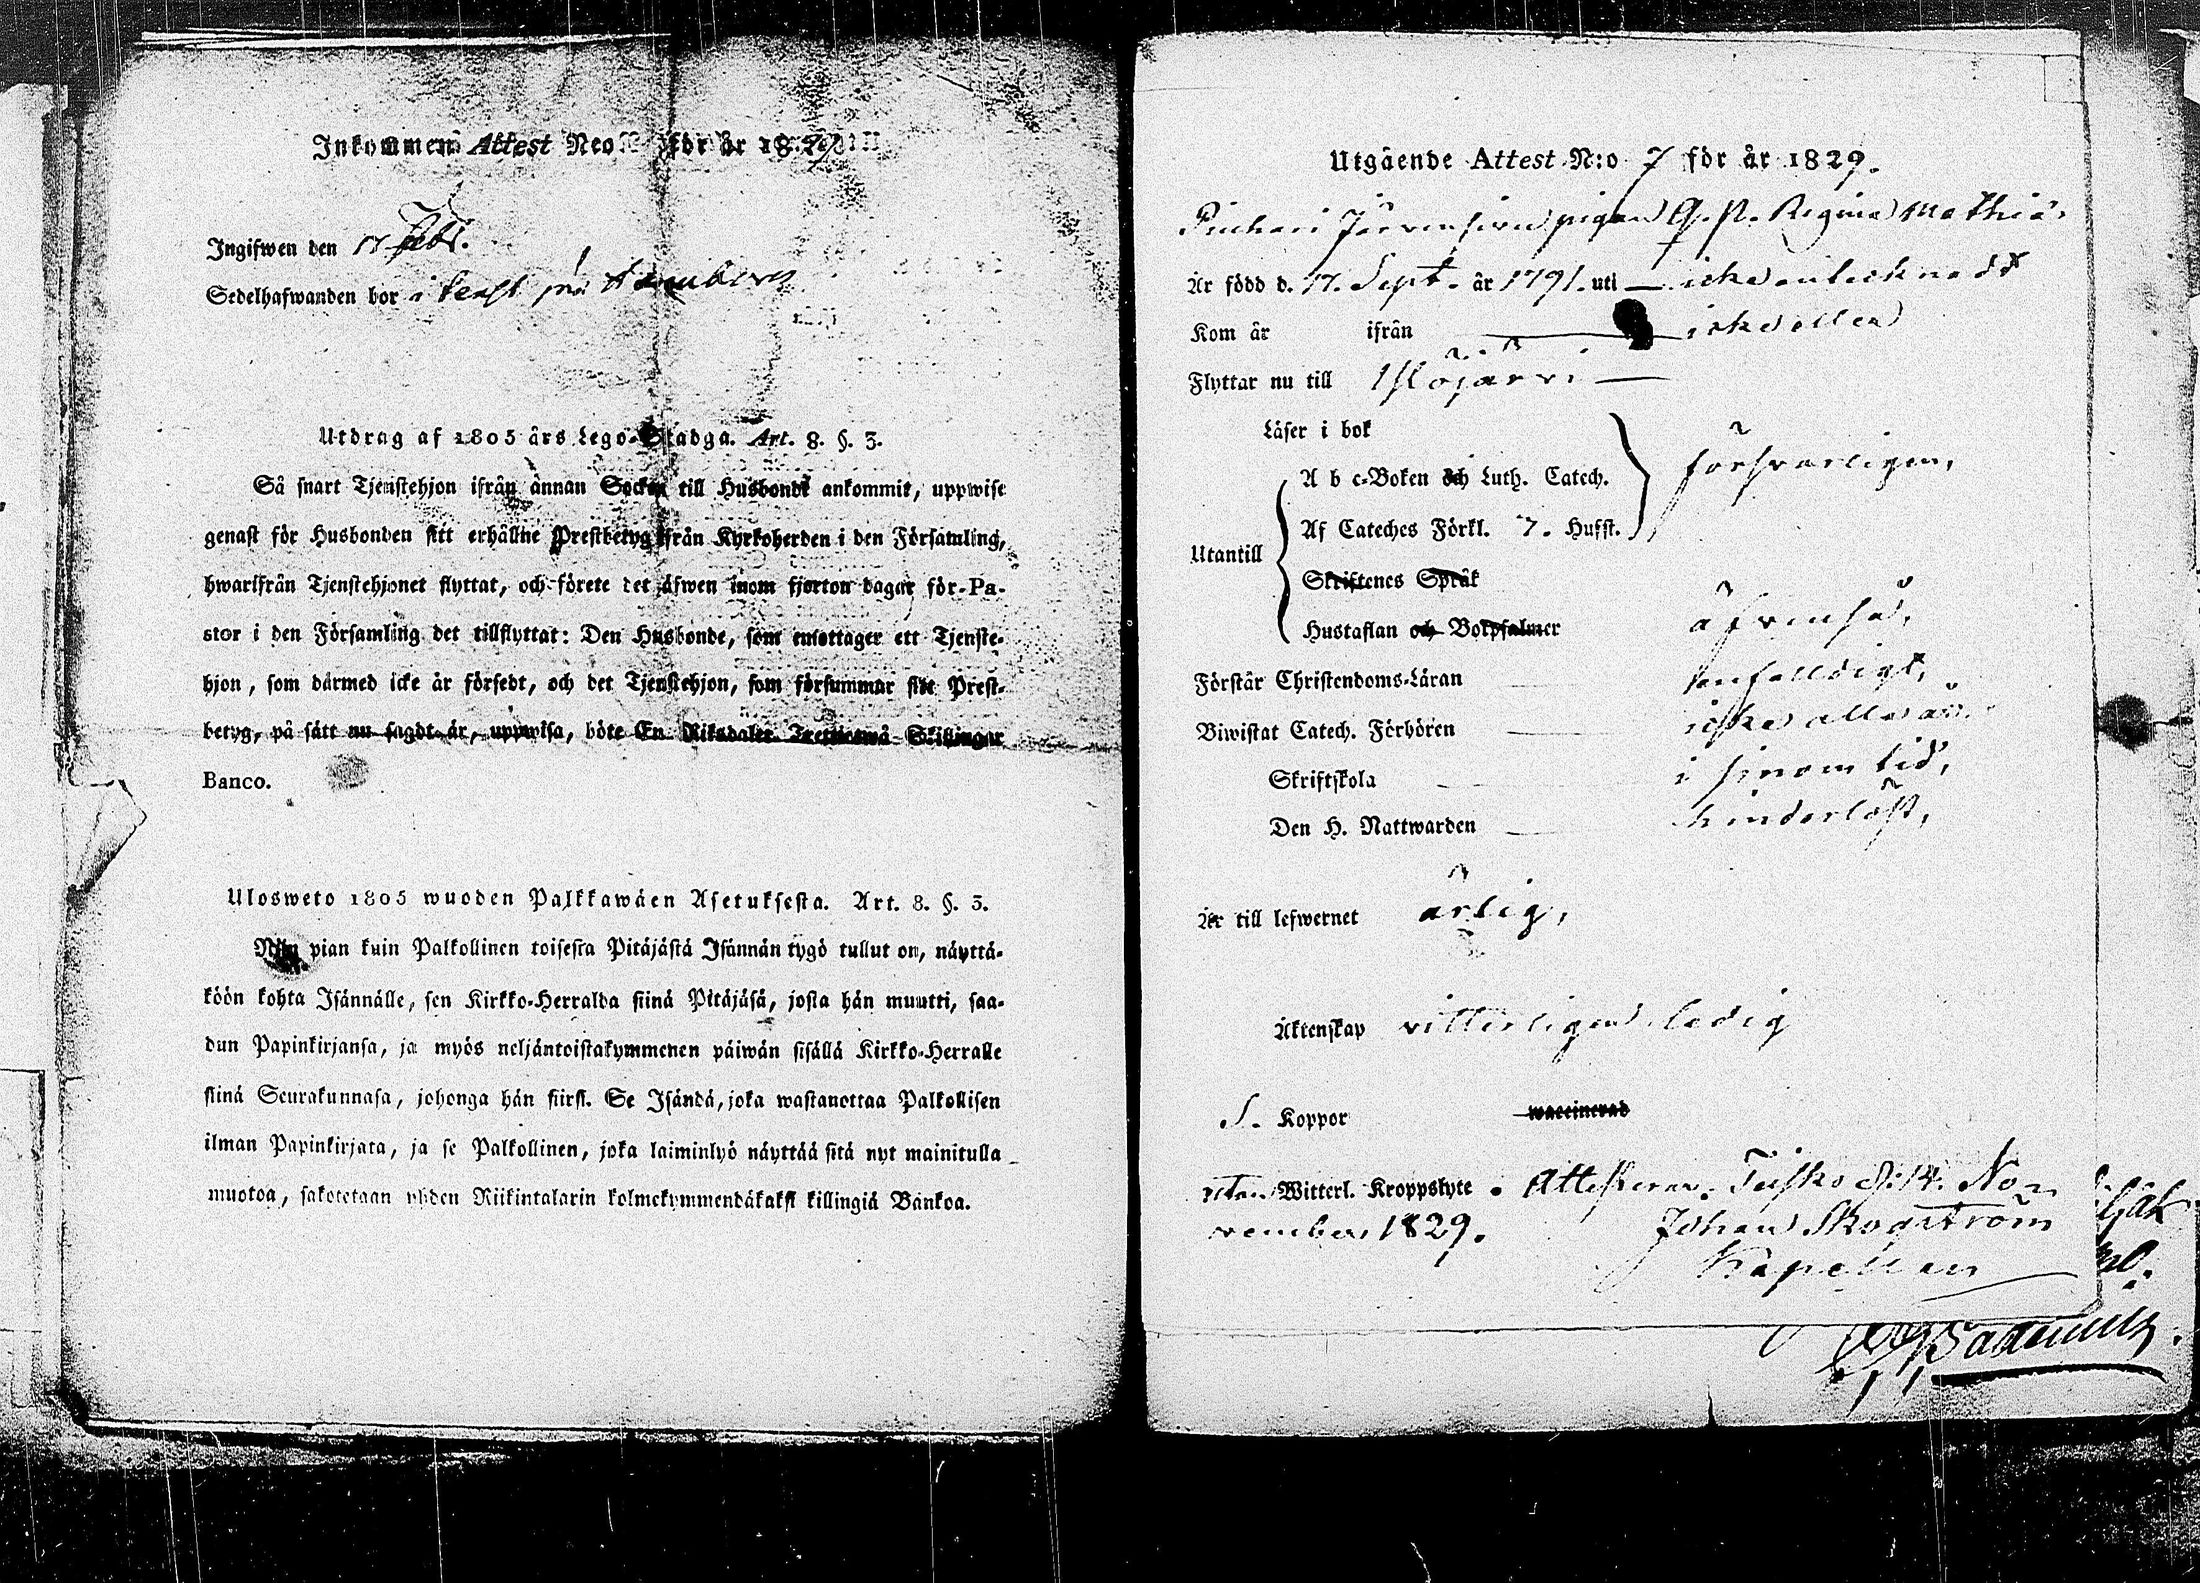 Inkommen Attest N:o för år 1829
Ingifwen den 17 Febr.
Sedelhafwanden bor i tenst på
Utdrag af 1805 års Lego-Stadga. Art. 8. §. 3.
Så snart Tjenstehjon ifrån annan Socken till Husbonde ankommit, uppwise
genast för Husbonden sitt erhållne Prestbetyg ifrån Kyrkoherden i den Församling,
hwarifrån Tjenstehjonet flyttat, och förete det äfwen inom fjorton dagar för Pa-
stor i den Församling det tillflyttat: Den Husbonde, som emottager ett Tjenste-
hjon, som därmed icke är försedt, och det Tjenstehjon, som försummar sitt Prest-
betyg, på sätt nu sagdt är, uppwisa, böte En Riksdaler Trettiotwå Skillingar
Banco.
Ulosweto 1805 wuoden Palkkawäen Asetuksesta. Art. 8. §. 3.
Niin pian kuin Palkollinen toisesta Pitäjästä Isännän tygö tullut on, näyttä-
köön kohta Isännälle, sen Kirkko-Herralda siinä Pitäjäsä, josta hän muutti, saa-
dun Papinkirjansa, ja myös neljäntoistakymmenen päiwän sisällä Kirkko-Herralle
siinä Seurakunnasa, johonga hän siirsi. Se Isändä, joka wastanottaa Palkollisen
ilman Papinkirjata, ja se Palkollinen, joka laiminlyö näyttää sitä nyt mainitulla
muotoa, sakotetaan yhden Riikintalarin kolmekymmendäkaksi killingiä Bankoa.
Utgående Attest N:o 7 för år 1829.
pigan Regina Mathiä
Är född d. 17. Sept. år 1791. uti — icke antecknadt
Kom år ifrån — icke eller
Flyttar nu till Ylöjärvi —
Läser i bok
A b c-Boken och Luth. Catech. försvarligen,
Af Cateches Förkl. 7. Hufst.
Utantill
Skriftenes Språk
Hustaflan och Botpsalmer äfvenså,
Förstår Christendoms-Läran enfalldigt,
Biwistat Catech. Förhören icke alla år.
Skriftskola i sinom tid,
Den H. Nattwarden hinderlöst,
Är till lefwernet ärlig,
Äktenskap vitterligen ledig
Koppor waccinerad
utan Witterl. Kroppslyte. Attesterar. Teisko d. 14. No-
vember 1829. Johan Skogström
Kapellan